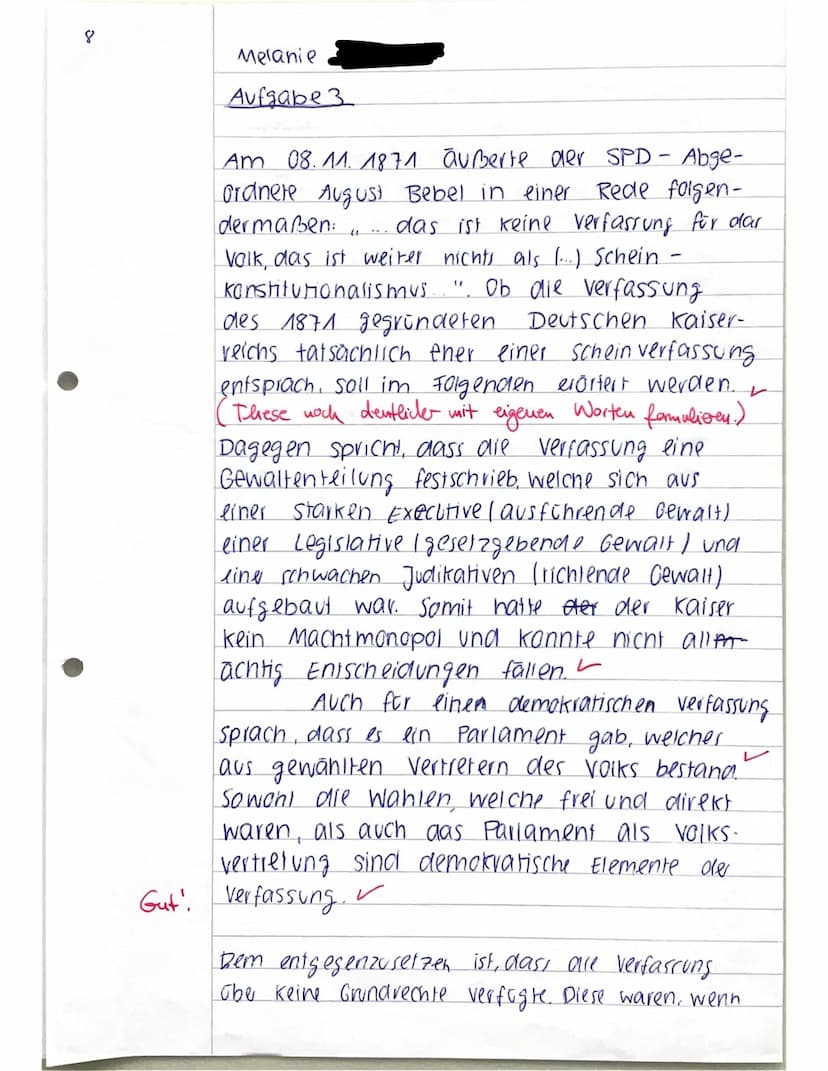 8
Melanie
Aufgabe 3
Am 08.11.1871 äußerte der SPD-Abge-
ordnete August Bebel in einer Rede folgen-
dermaßen: „... das ist keine Verfassung für das
Volk, das ist weiter nichts als (...) Schein-
konstitutionalismus...". Ob die Verfassung
des 1871 gegründeten Deutschen Kaiser-
reichs tatsächlich eher einer Scheinverfassung
entsprach, soll im Folgenden erörtert werden. ✓
(These noch deutlicher mit eigenen Worten formulieren.)
Dagegen spricht, dass die Verfassung eine
Gewaltenteilung festschrieb, welche sich aus
einer starken Executive (ausführende Gewalt)
einer Legislative (gesetzgebende Gewalt) und
einer schwachen Judikativen (richtende Gewalt)
aufgebaut war. Somit hatte der der Kaiser
kein Machtmonopol und konnte nicht allm-
ächtig Entscheidungen fällen. ✓
Auch für einen demokratischen Verfassung
sprach, dass es ein Parlament gab, welches
aus gewählten Vertretern des Volks bestand. ✓
Sowohl die Wahlen, welche frei und direkt
waren, als auch das Parlament als Volks-
vertretung sind demokratische Elemente der
Gut! Verfassung. ✓
Dem entgegenzusetzen ist, dass die Verfassung
über keine Grundrechte verfügte. Diese waren, wenn